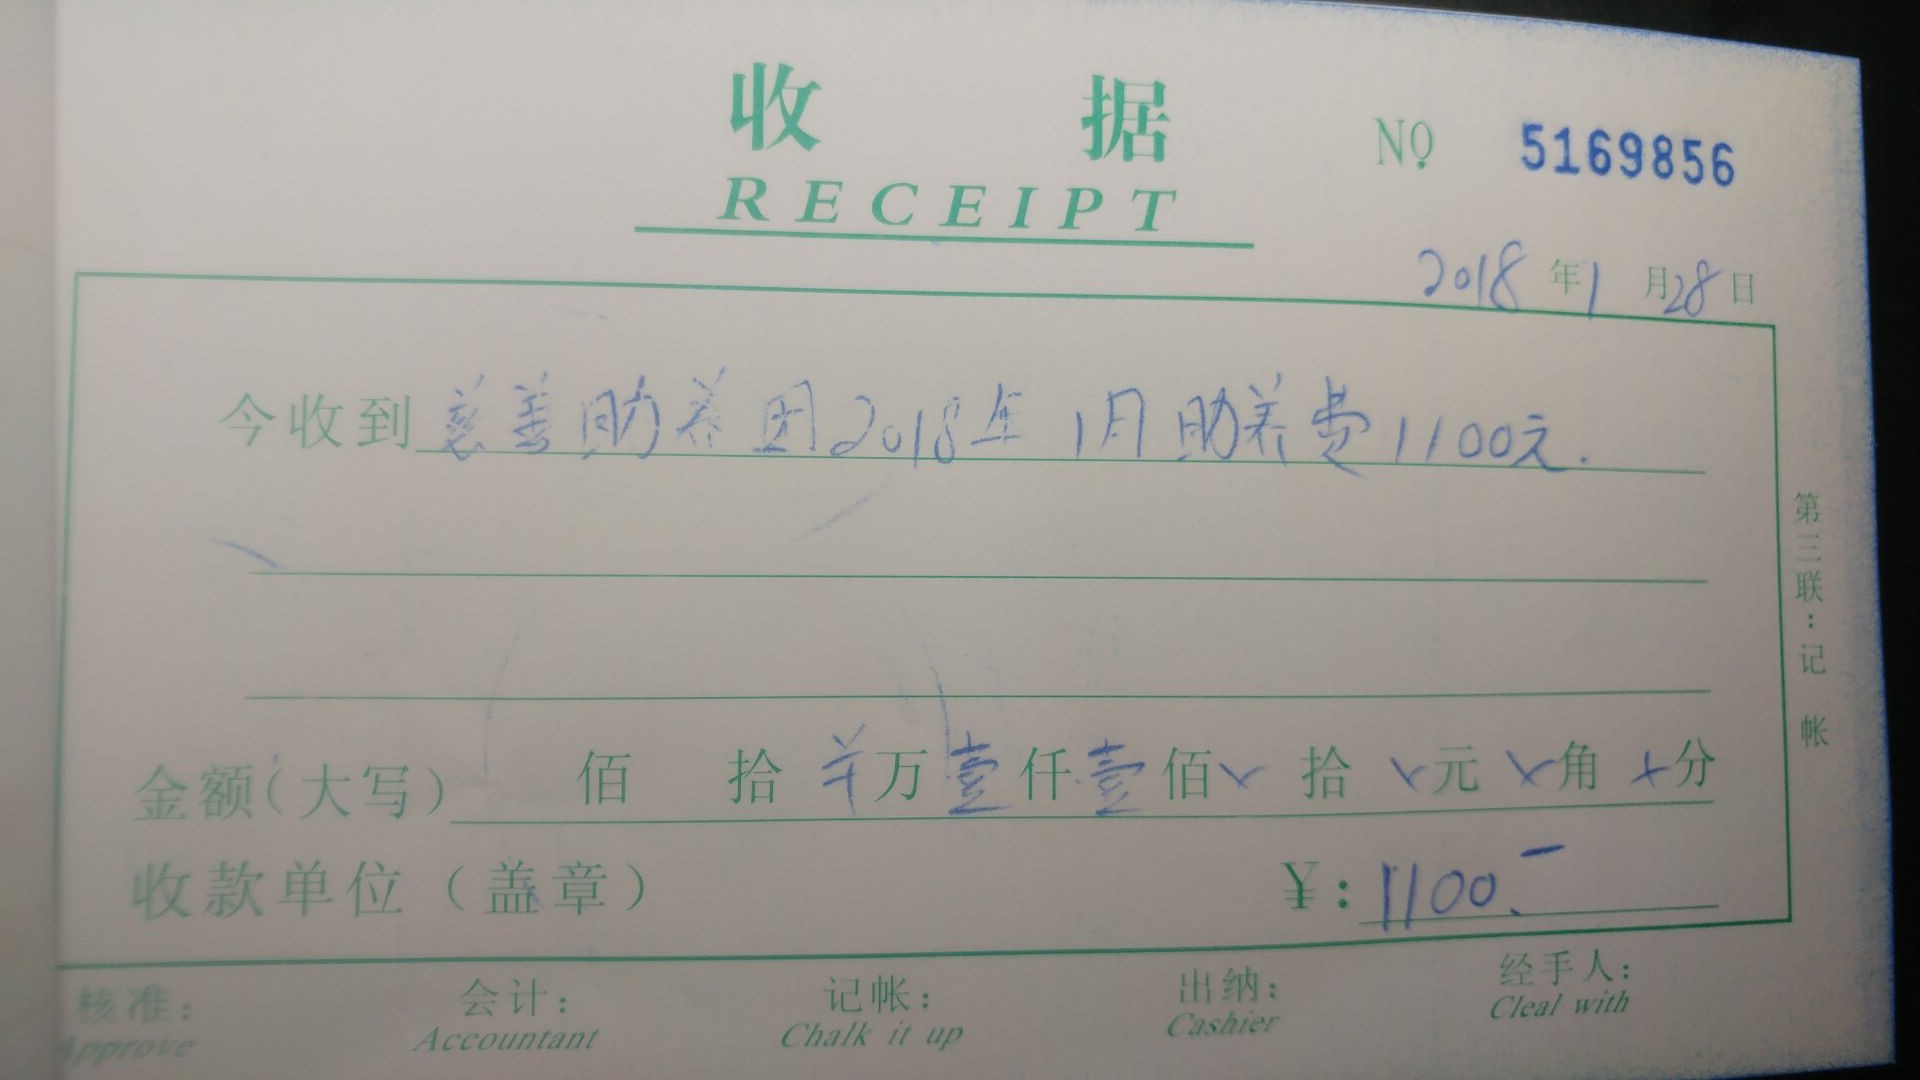 收 据
RECEIPT
NO 5169856
2018年1月28日
今收到慈善助养团2018年1月助养费1100元.
金额(大写) 佰 拾 万壹仟壹佰 拾 元 角 分
收款单位(盖章) ¥:1100.-
第三联:记帐
核准: 会计: 记帐: 出纳: 经手人:
Approve Accountant Chalk it up Cashier Cleal with